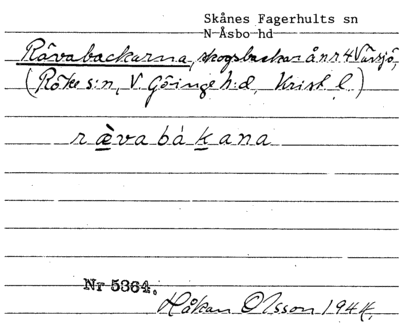 Skånes Fagerhults sn
N Åsbo hd
Rävabackarna, skogsbackar å nr 4 Värsjö,
(Röke s:n, V. Göinge h:d, Krist. l.)
r æ̀va bá k ana
Nr 5364.
Håkan Olsson 1944.